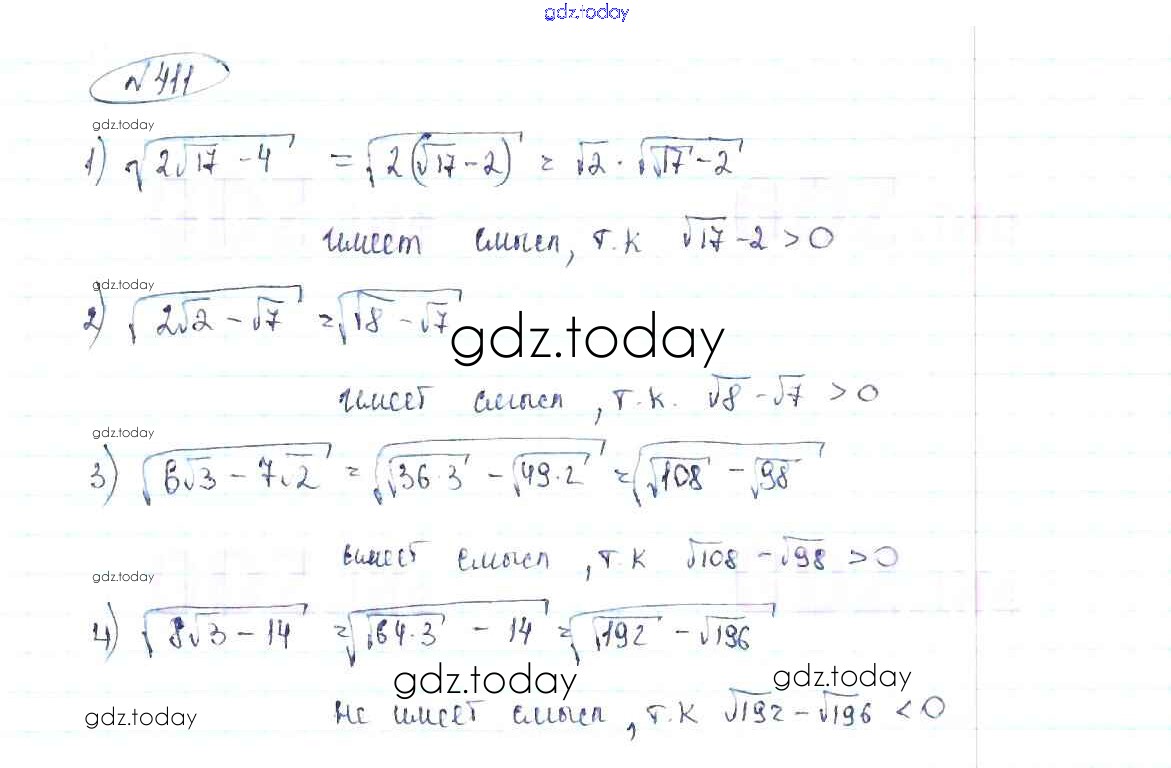 gdz.today
№ 411
gdz.today
1) √(2√17 - 4) = √(2(√17 - 2)) = √2 · √(√17 - 2)
имеет смысл, т.к √17 - 2 > 0
gdz.today
2) √(2√2 - √7) = √(√8 - √7)
gdz.today
имеет смысл, т.к. √8 - √7 > 0
gdz.today
3) √(6√3 - 7√2) = √(√36·3 - √49·2) = √(√108 - √98)
имеет смысл, т.к √108 - √98 > 0
gdz.today
4) √(8√3 - 14) = √(√64·3 - 14) = √(√192 - √196)
gdz.today
gdz.today
gdz.today
не имеет смысл, т.к √192 - √196 < 0